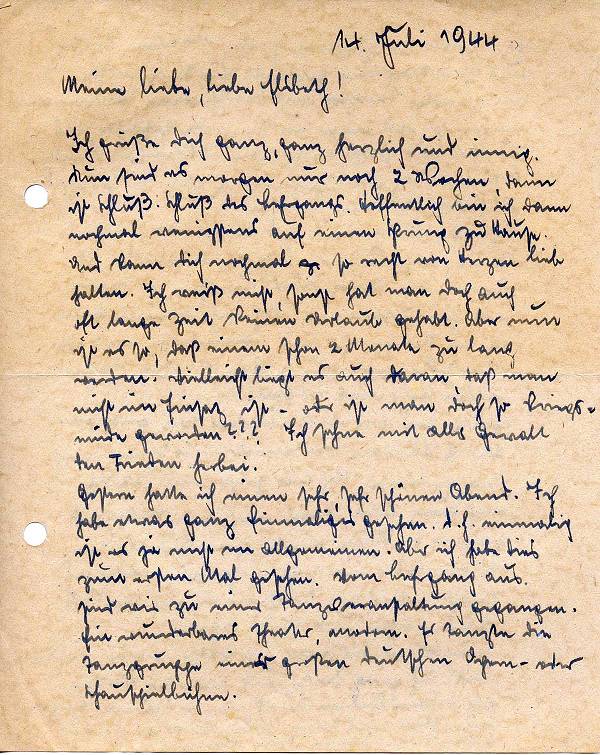 14. Juli 1944
Meine liebe, liebe Elsbeth!
Ich grüße Dich ganz, ganz herzlich und innig.
Nun sind es morgen nur noch 2 Wochen, dann
ist Schluß. Schluß des Lehrgangs. Hoffentlich bin ich dann
nochmal wenigstens auf einen Sprung zu Hause.
Und kann Dich nochmal so recht von Herzen lieb
halten. Ich weiß nicht, sonst hat man doch auch
oft lange Zeit keinen Urlaub gehabt. Aber nun
ist es so, daß einem schon 2 Monate zu lang
werden. Vielleicht liegt es auch daran, daß man
nicht im Einsatz ist – oder ist man doch so kriegs=
müde geworden??? Ich sehne mit aller Gewalt
den Frieden herbei.
Gestern hatte ich einen sehr, sehr schönen Abend. Ich
habe etwas ganz Einmaliges gesehen. d.h. einmalig
ist es ja nicht im allgemeinen. Aber ich habe dies
zum ersten Mal gesehen. Vom Lehrgang aus.
sind wir zu einer Tanzveranstaltung gegangen.
Ein wunderbares Theater, modern. Es tanzte die
Tanzgruppe einer großen deutschen Opern- oder
Schauspielbühne.